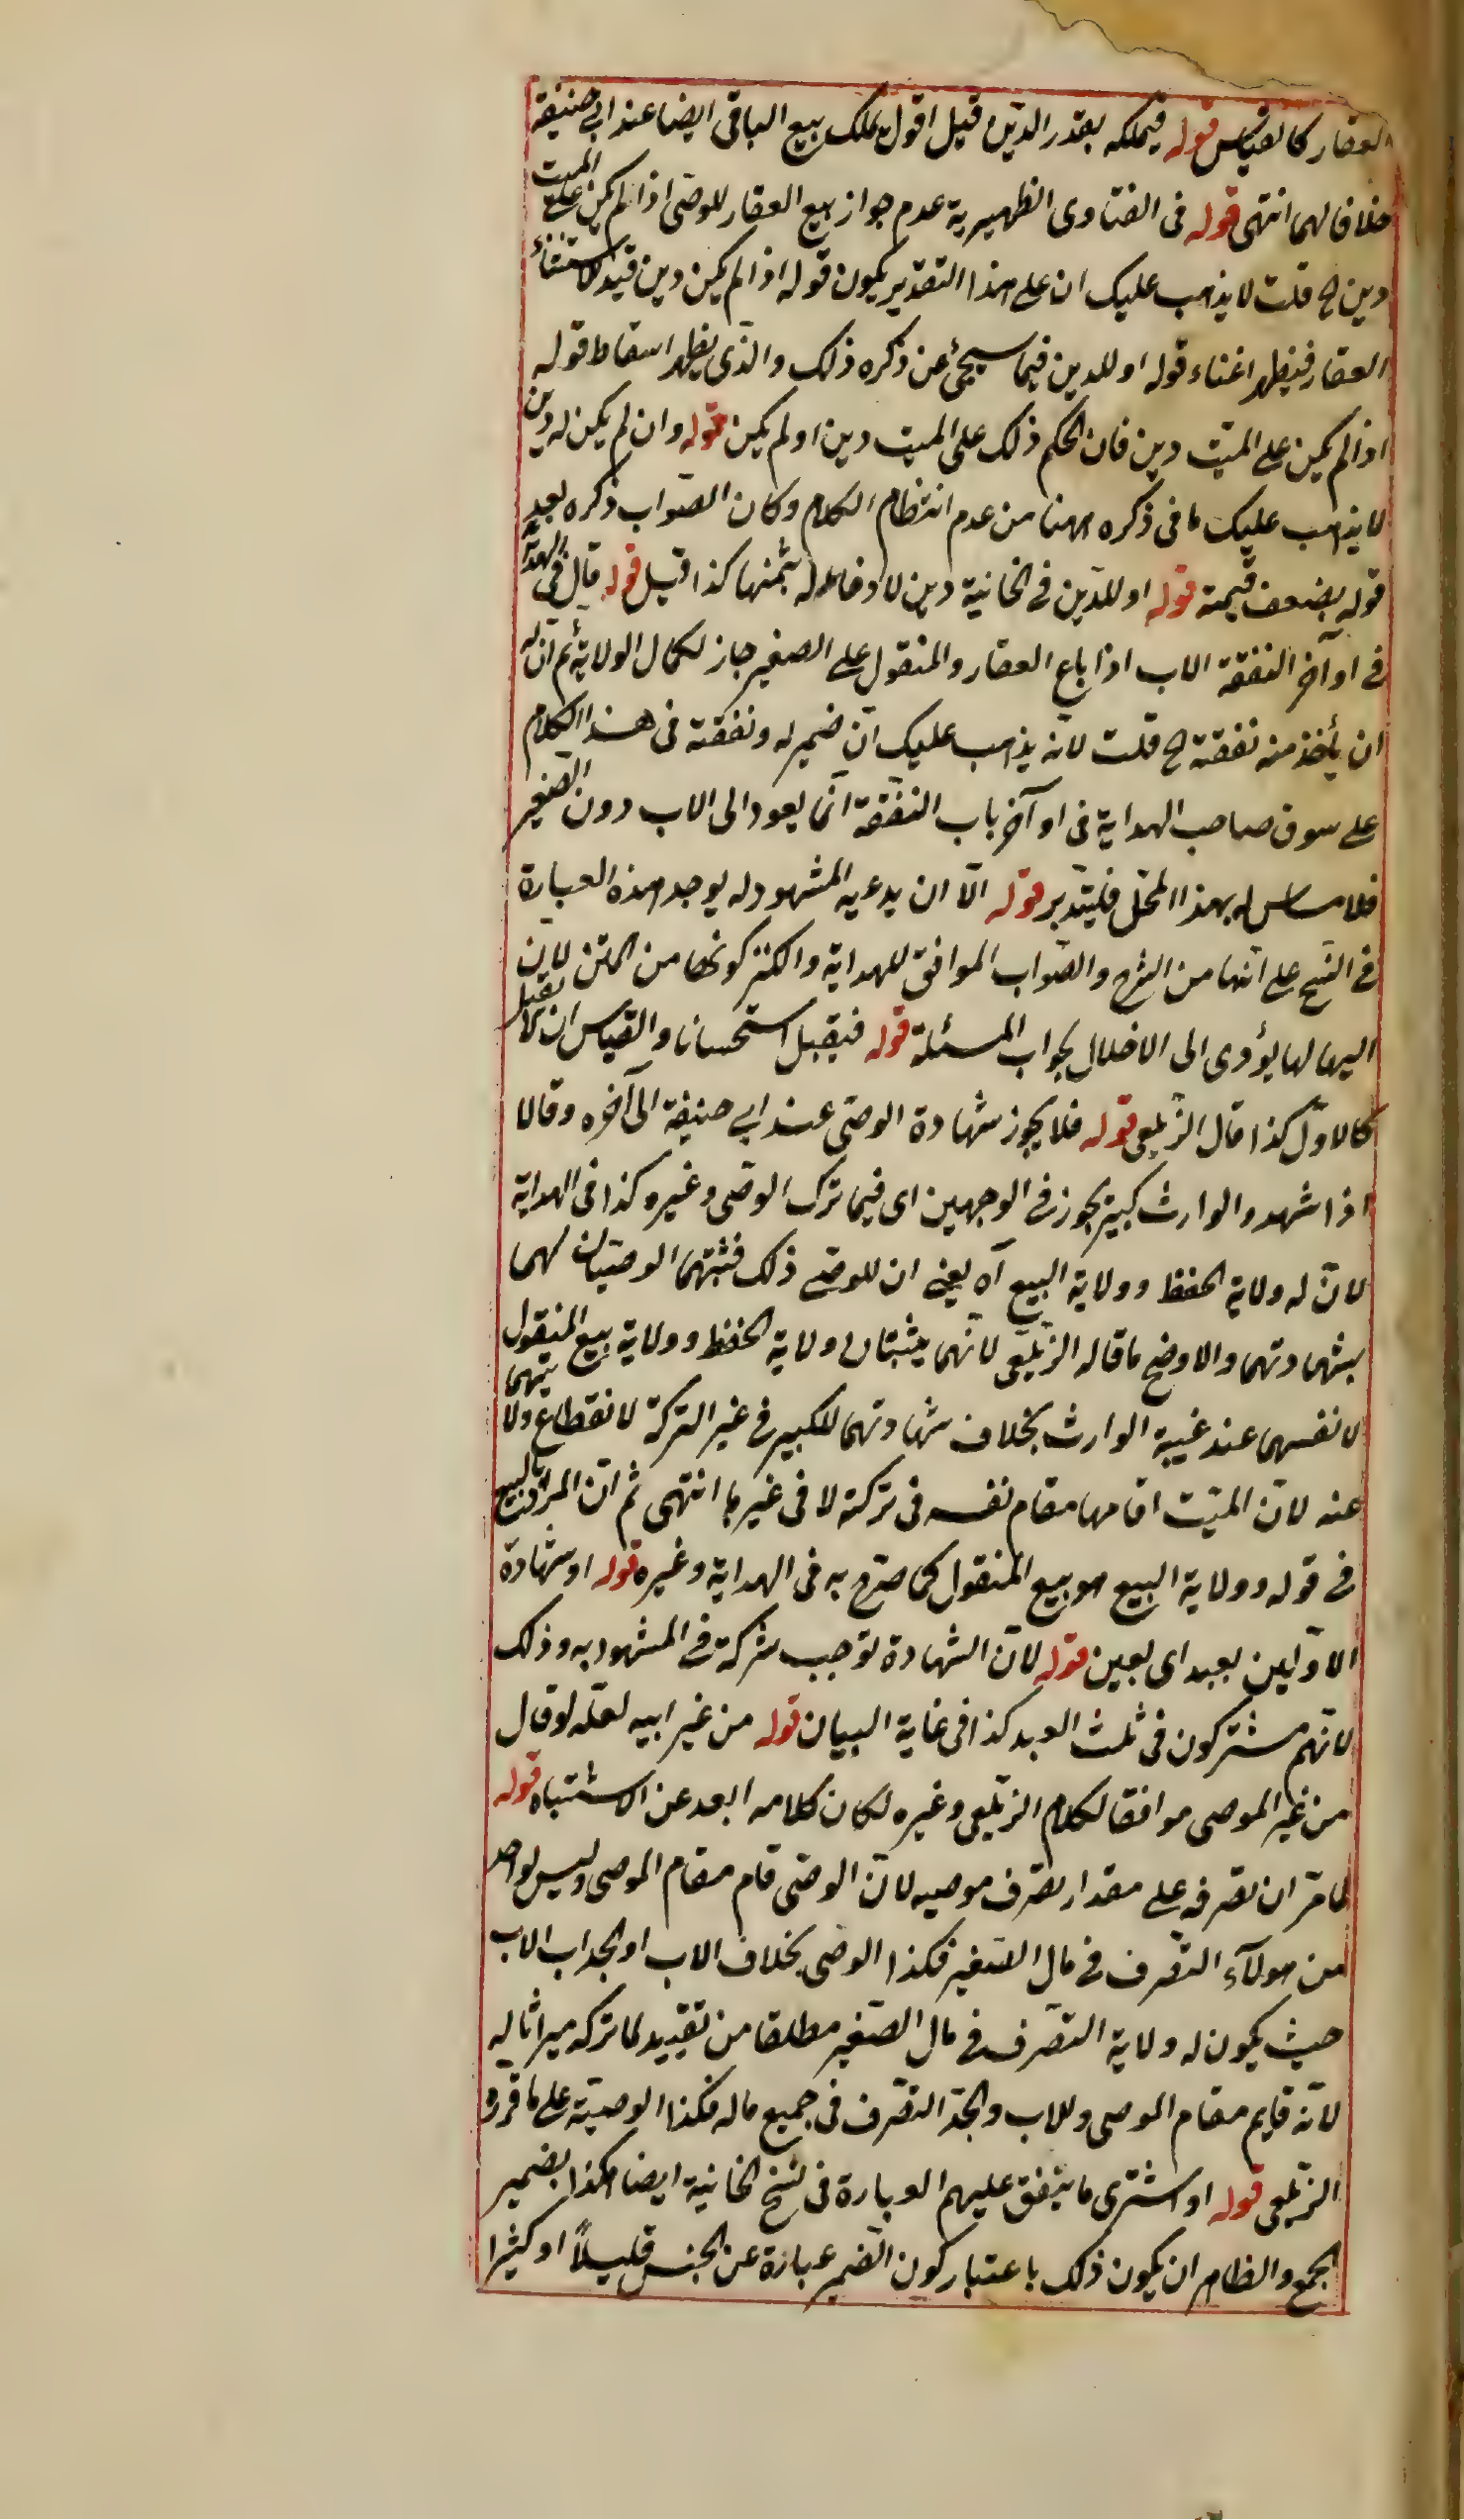 العقار كالقياس قوله فيملكه بقدر الدّين قيل اقول يملك بيع الباقى ايضا عند ابى حنيفة
خلافا لهما انتهى قوله فى الفتاوى الظهيرية عدم جواز بيع العقار للوصّى اذا لم يكن على الميت
دين الخ قلت لا يذهب عليك ان على هذا التقدير يكون قوله اذا لم يكن دين قيد لاستثناء
العقار فيظهر اغناء قوله او للدين فيما سيجئ عن ذكره ذلك والذّى يظهر اسقاط قوله
اذا لم يكن على الميّت دين فان الحكم ذلك على الميت دين او لم يكن قوله وان لم يكن له دين
لا يذهب عليك ما فى ذكره ههنا من عدم انتظام الكلام وكان الصّواب ذكره بعد
قوله بضعف قيمته قوله او للدّين فى الخانية دين لا وفاء له بثمنها كذا قيل قوله قال فى الهداية
فى اوآخر النفقة الاب اذا باع العقار والمنقول على الصغير جاز لكمال الولاية ثم انّ له
ان يأخذ منه نفقته الخ قلت لانّه يذهب عليك انّ ضمير له ونفقته فى هذا الكلام
على سوق صاحب الهداية فى اوآخر باب النفقة انّما يعود الى الاب دون الصّغير
فلا مساس له بهذا المحّل فليتدّبر قوله الّا ان يدعيه المشهود له يوجد هذه العبارة
فى النسّخ على انّها من الشرح والصّواب الموافق للهداية والكنز كونها من المتن لانّ
اليها لها يؤدى الى الاخلال بجواب المسئلة قوله فيقبل استحسانا والقياس ان لا يقبل
كالاوّل كذا قال الزّيلعى قوله فلا يجوز شهادة الوصّى عند ابى حنيفة الى آخره وقالا
اذا شهد والوارث كبير يجوز فى الوجهين اى فيما ترك الوصّى وغيره كذا فى الهداية
لانّ له ولاية الحفظ وولاية البيع آه يعنى ان للوصّى ذلك فثبتهما الوصيّان لهما
بشهادتهما والاوضح ما قاله الزّيلعى لانّهما يثبتان ولاية الحفظ وولاية بيع المنقول
لانفسهما عند غيبة الوارث بخلاف شهادتهما للكبير فى غير التركة لانقطاع ولايتهما
عنه لانّ الميّت اقامها مقام نفسه فى تركته لا فى غيرها انتهى ثم انّ المراد بالبيع
فى قوله وولاية البيع هو بيع المنقول كما صرّح به فى الهداية وغيره قوله او شهادة
الاوّلين بعبد اى بعين قوله لانّ الشهادة توجب شركة فى المشهود به وذلك
لانّهم مشتركون فى ثلث العبد كذا فى غاية البيان قوله من غير ابيه لعلّه لو قال
من غير الموصى موافقا لكلام الزّيلعى وغيره لكان كلامه ابعد عن الاشتباه قوله
لما مرّ ان تصرفه على مقدار تصرّف موصيه لانّ الوصّى قام مقام الموصى وليس لواحد
من هولآء التّصرف فى مال الصّغير فكذا الوصّى بخلاف الاب او الجد اب الاب
حيث يكون له ولاية التصّرف فى مال الصّغير مطلقا من تقييد لما تركه ميراثا له
لانّه قايم مقام الموصى وللاب والجدّ التصّرف فى جميع ماله فكذا الوصيّة على ما قرره
الزّيلعى قوله او اشترى ما ينفق عليهم العبارة فى نسخ الخانية ايضا هكذا بضمير
الجمع والظاهر ان يكون ذلك باعتبار كون الضّمير عبارة عن الجنس قليلاً او كثيرا